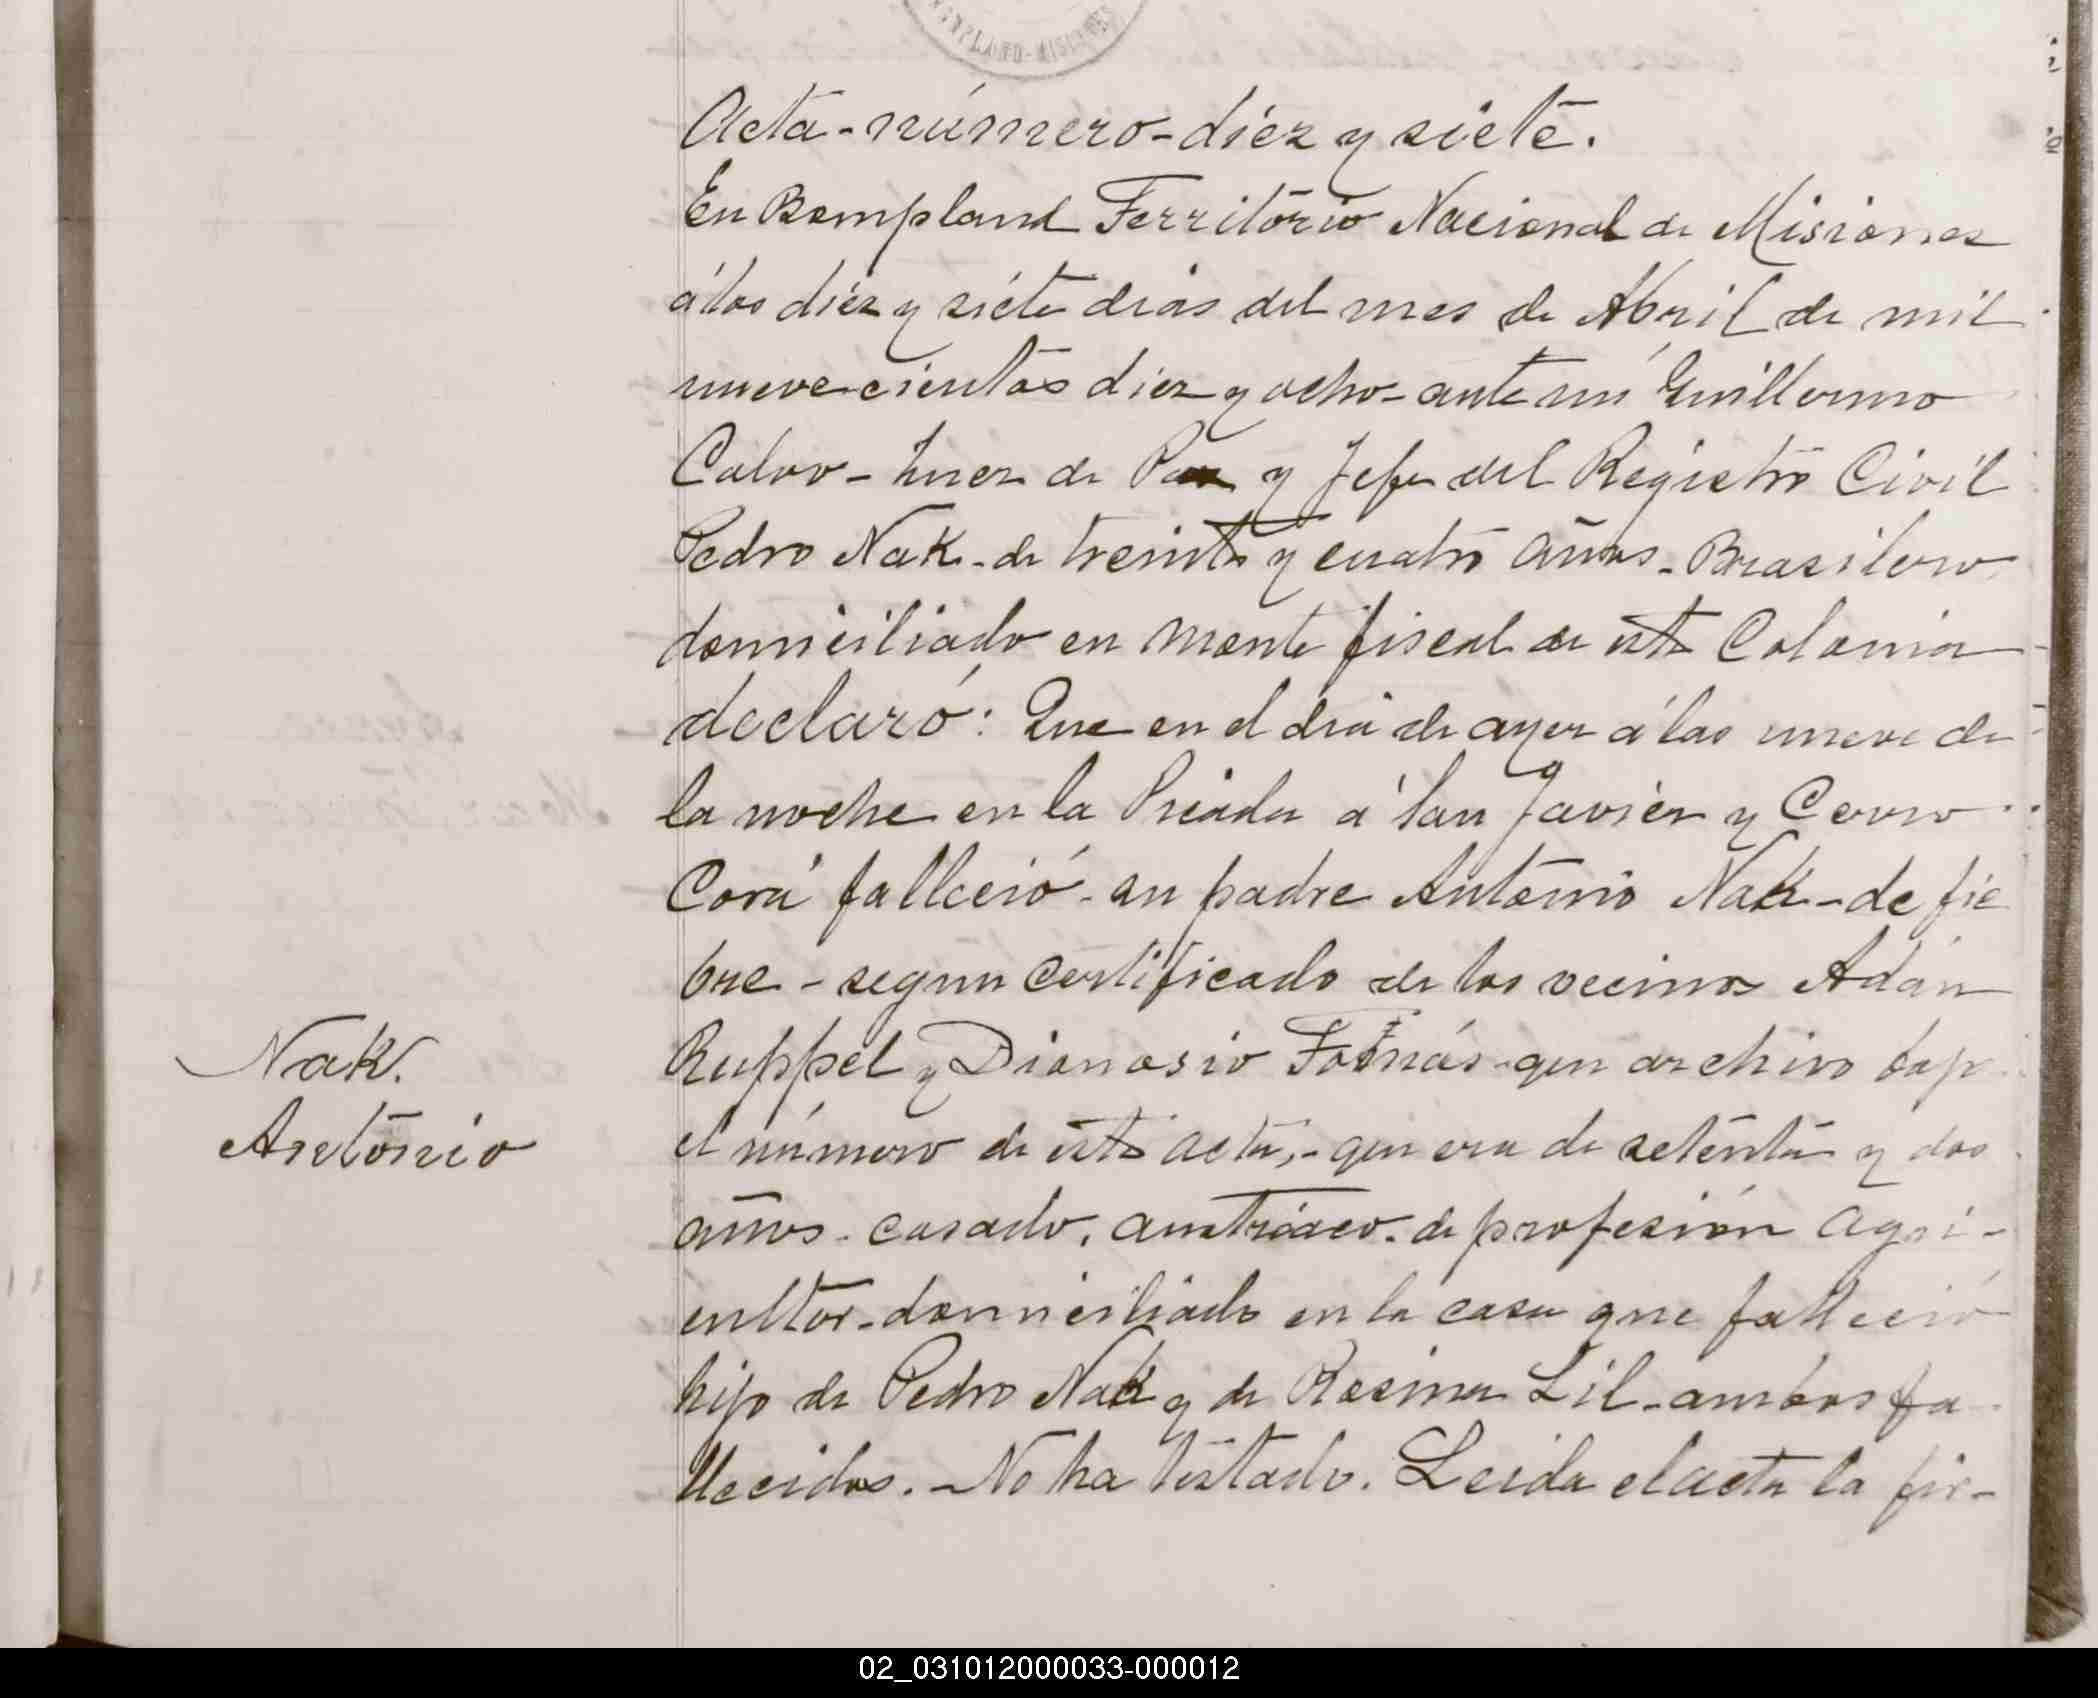 BONPLAND-MISIONES
Acta-número-diez y siete.
En Bompland Territorio Nacional de Misiones
á los diéz y siéte dias del mes de Abril de mil
nueve cientos diez y ocho-ante mi Guillermo
Calvo-Juez de Paz y Jefe del Registro Civil
Pedro Nak-de treinta y cuatro años-Brasilero
domiciliado en monte fiscal de esta Colonia
declaró: Que en el dia de ayer á las nueve de
la noche en la Picada á San Javier y Cerro
Corá falleció-su padre Antonio Nak-de fie
bre-segun certificado de los vecinos Adán
Ruppel y Dionosio Tomás-que archivo bajo
el número de esta acta,-que era de setenta y dos
años-casado, austriaco-de profesión agri-
cultor-domiciliado en la casa que falleció
hijo de Pedro Nak y de Rosina Lil-ambos fa
llecidos.-No ha testado. Leida el acta la fir-
Nak.
Antonio
02_031012000033-000012